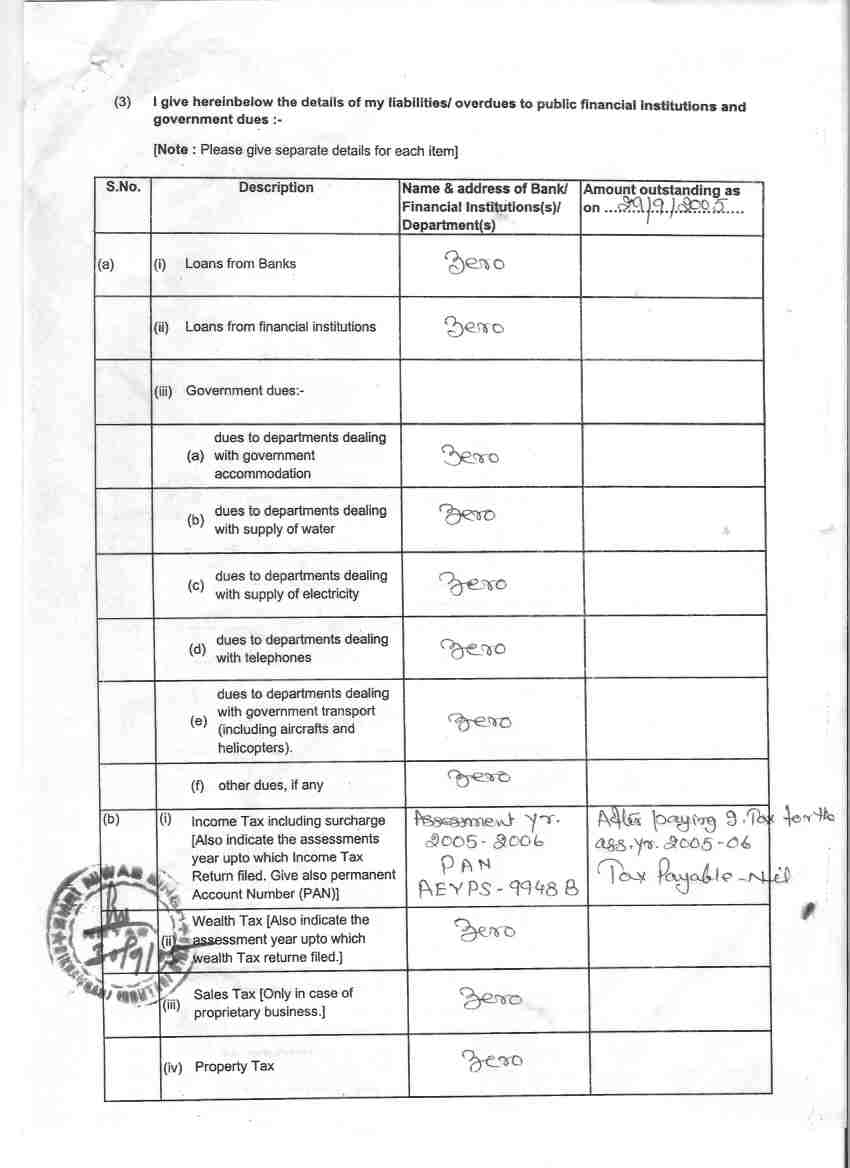 (3) I give hereinbelow the details of my liabilities/ overdues to public financial institutions and
government dues :-
[Note : Please give separate details for each item]
S.No. Description Name & address of Bank/ Amount outstanding as
Financial Institutions(s)/ on ...29/9/2005....
Department(s)
(a) (i) Loans from Banks Zero
(ii) Loans from financial institutions Zero
(iii) Government dues:-
dues to departments dealing
(a) with government Zero
accommodation
(b) dues to departments dealing Zero
with supply of water
(c) dues to departments dealing Zero
with supply of electricity
(d) dues to departments dealing Zero
with telephones
dues to departments dealing
(e) with government transport Zero
(including aircrafts and
helicopters).
(f) other dues, if any Zero
(b) (i) Income Tax including surcharge Assessment yr. After paying I. Tax for the
[Also indicate the assessments 2005-2006 ass. yr. 2005-06
year upto which Income Tax PAN Tax Payable - Nil
Return filed. Give also permanent AEYPS-9948B
Account Number (PAN)]
Wealth Tax [Also indicate the Zero
(ii) assessment year upto which
wealth Tax returne filed.]
(iii) Sales Tax [Only in case of Zero
proprietary business.]
(iv) Property Tax Zero